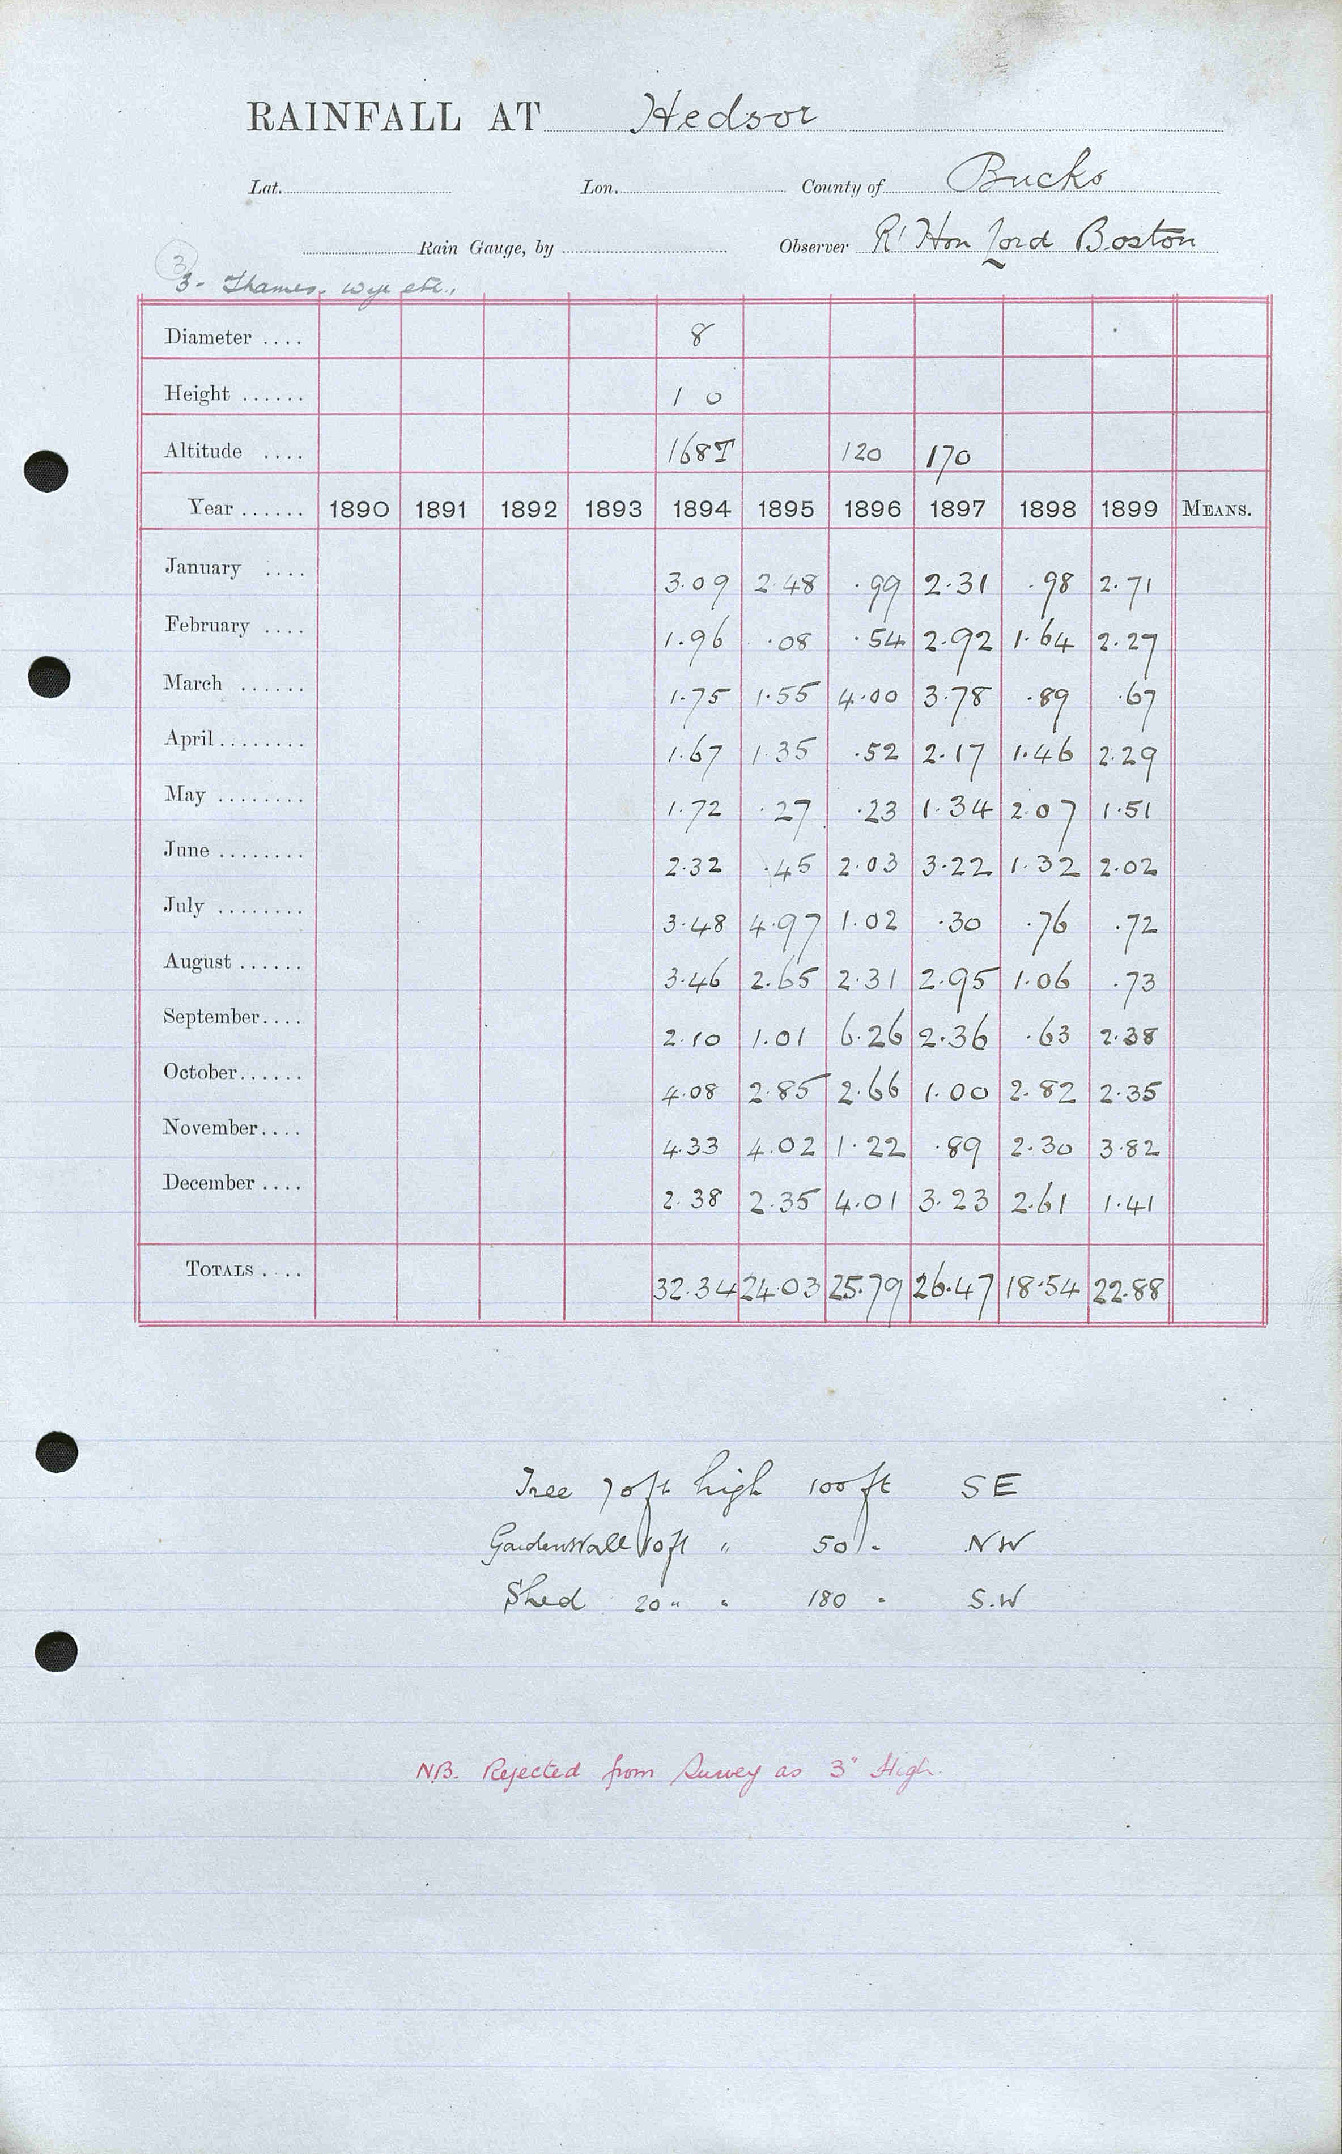 RAINFALL AT Hedsor
Lat. Lon. County of Bucks
Rain Gauge, by Observer Rt Hon Lord Boston
3
3- Thames, Wye etc.,
Diameter .... 8
Height ...... 1 0
Altitude .... 168T 120 170
Year ...... 1890 1891 1892 1893 1894 1895 1896 1897 1898 1899 MEANS.
January .... 3.09 2.48 .99 2.31 .98 2.71
February .... 1.96 .08 .54 2.92 1.64 2.27
March ...... 1.75 1.55 4.00 3.78 .89 .67
April ........ 1.67 1.35 .52 2.17 1.46 2.29
May ........ 1.72 .27 .23 1.34 2.07 1.51
June ........ 2.32 .45 2.03 3.22 1.32 2.02
July ........ 3.48 4.97 1.02 .30 .76 .72
August ...... 3.46 2.65 2.31 2.95 1.06 .73
September.... 2.10 1.01 6.26 2.36 .63 2.38
October...... 4.08 2.85 2.66 1.00 2.82 2.35
November.... 4.33 4.02 1.22 .89 2.30 3.82
December .... 2.38 2.35 4.01 3.23 2.61 1.41
TOTALS .... 32.34 24.03 25.79 26.47 18.54 22.88
Tree 70ft high 100ft SE
Garden Wall 10ft " 50 " NW
Shed 20 " " 180 " S.W
NB. Rejected from Survey as 3" High.